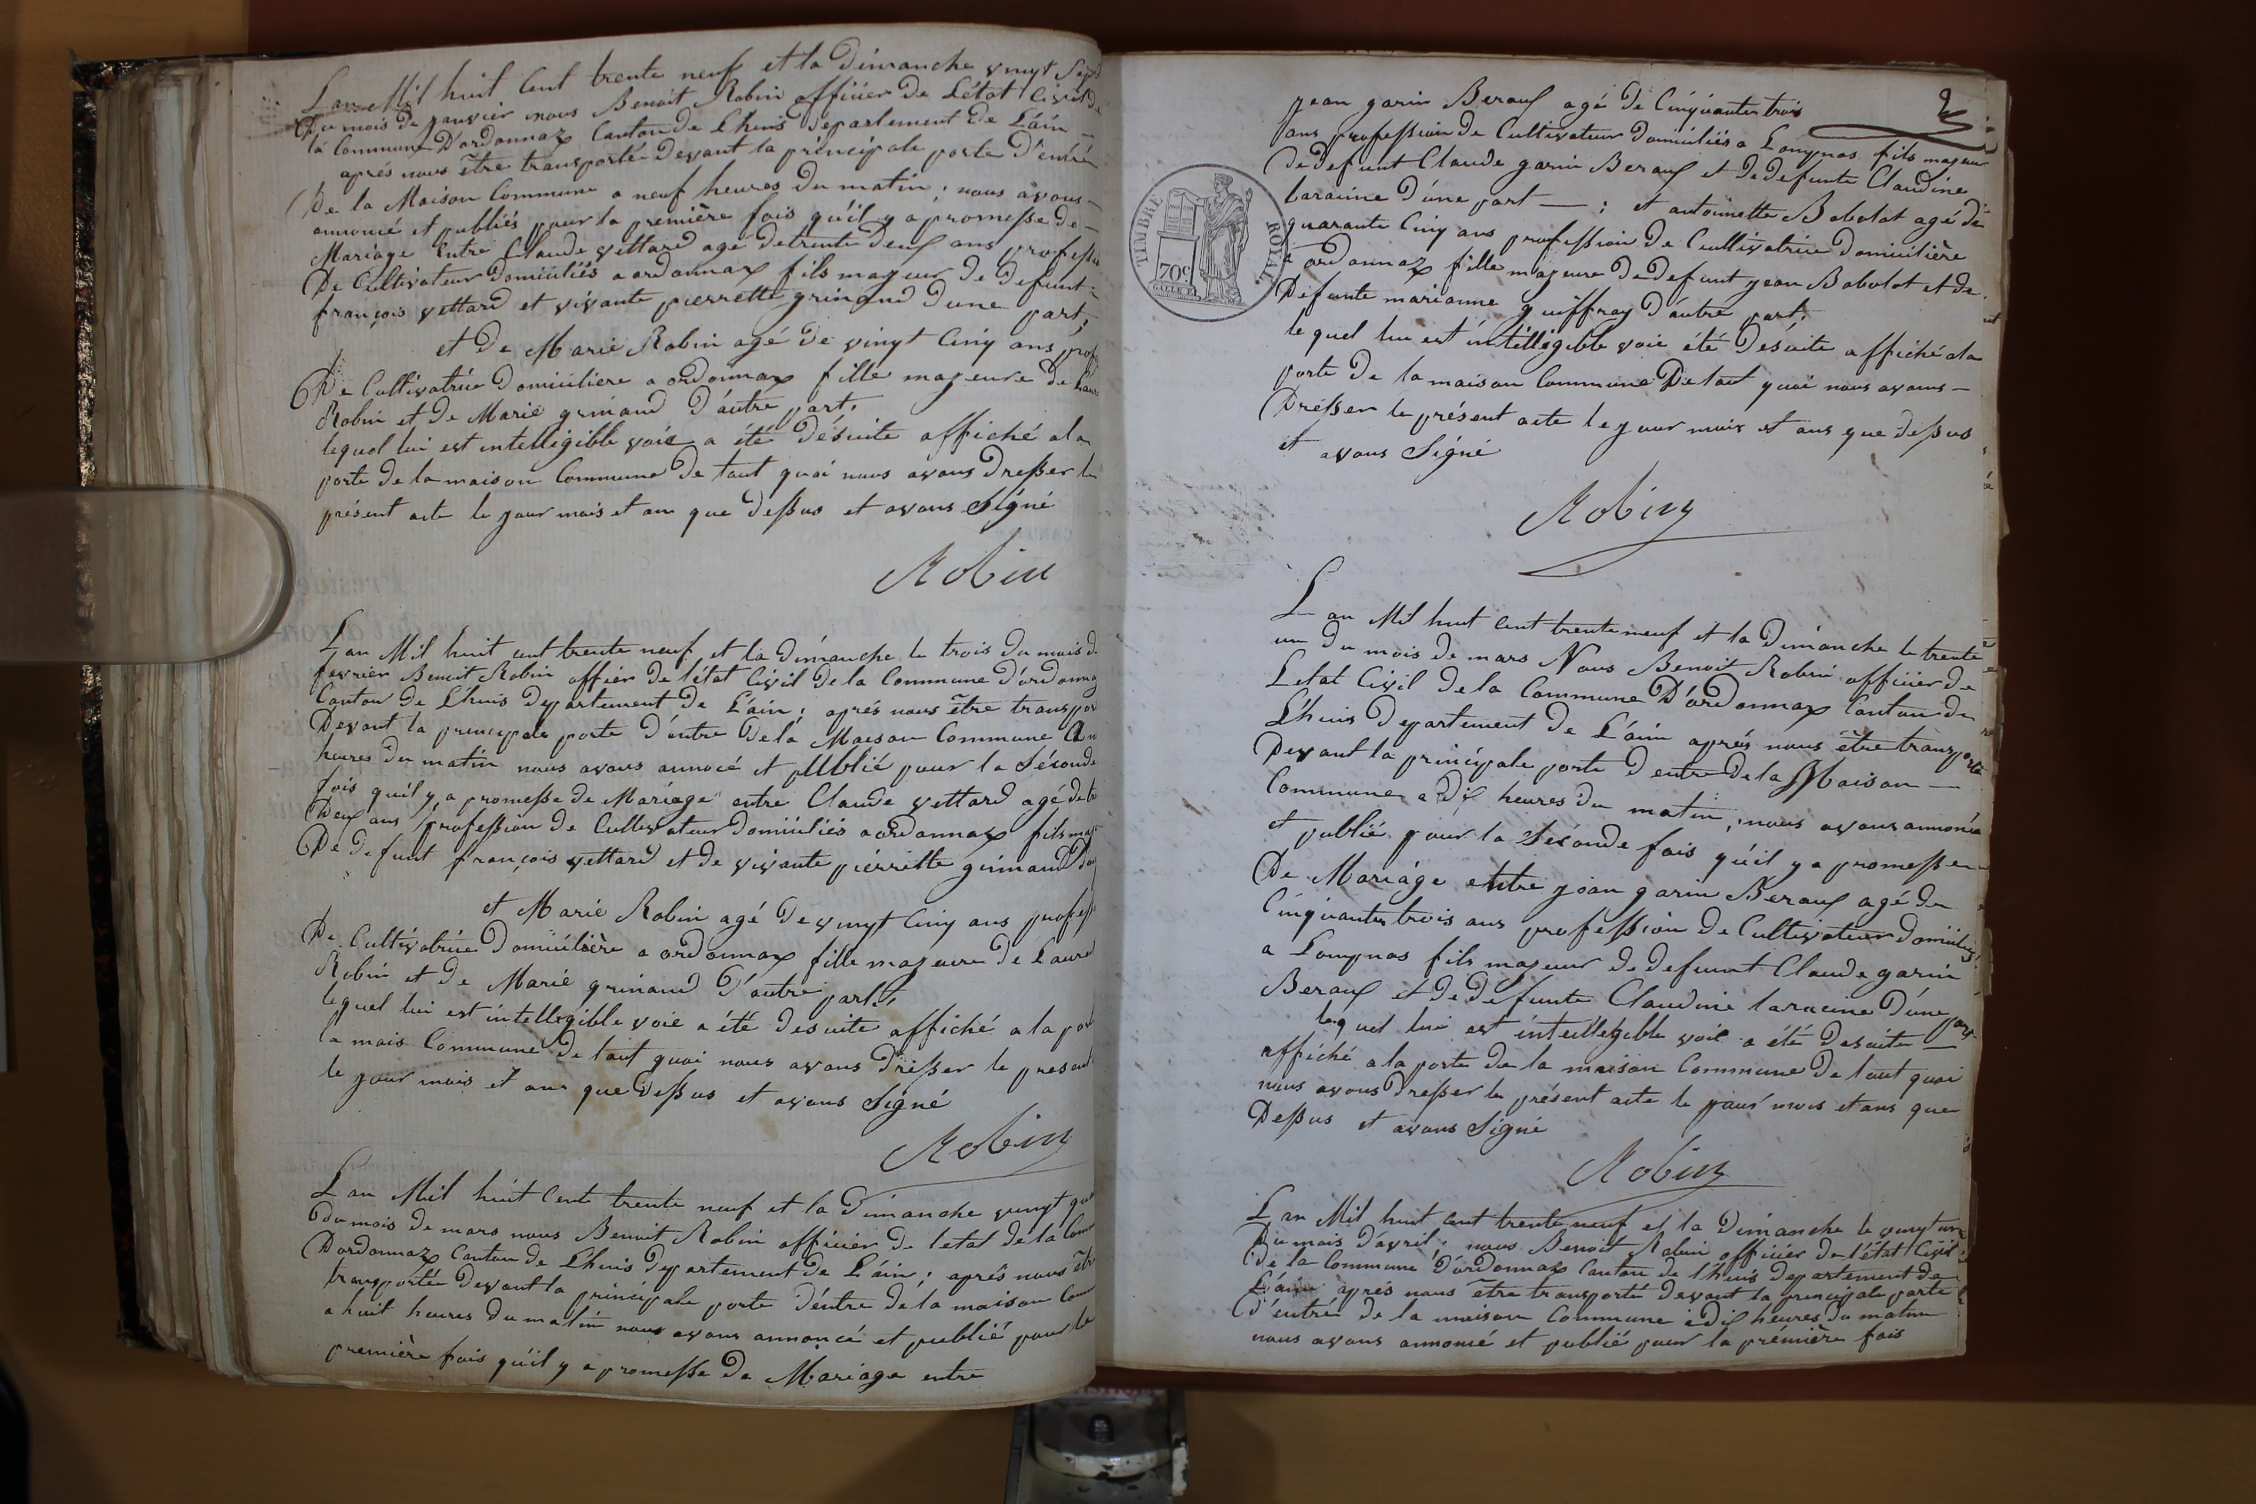 Lan Mil huit Cent trente neuf et la Dimanche vingt Sept
Du mois de janvier nous Benoit Robin officier De L'état Civil de
la Commune D'ordonnaz Canton de Lhuis Departement De L'ain –
aprés nous être transporté Devant la principale porte D'entré
De la Maison Commune a neuf heures du matin ; nous avons –
annoncé et publiés pour la première fois qu'il y a promesse de –
Mariage entre Claude vettard agé detrente Deux ans professi
De Cultivateur Domiciliés a ordonnax fils majeur de Defunt
françois vettard et vivante pierrette grinand Dune part,
et De Marie Robin agé De vingt Cinq ans prof
De Cultivatrice Domiciliere a ordonnax fille majeure de
Robin et de Marie grinand D'autre part,
lequel lui est intelligible voie a été Désuite affiché ala
porte de la maison Commune De tout quoi nous avons Dresser le
présent acte le jour mois et an que Dessus et avons Signé
Robin
Lan Mil huit cent trente neuf et la Dimanche le trois du mois d
fevrier Benoit Robin offier de l'état Civil De la Commune D'ordonna
Canton De Lhuis Departement De L'ain ; aprés nous être transpor
Devant la principale porte D'entre De la Maison Commune
heures du matin nous avons annocé et publié pour la Séconde
fois qu'il y a promesse de Mariage entre Claude vettard agé de
Deux ans profession de Cultivateur Domiciliés a ordonnax fils maj
De Defunt françois vettard et de vivante pierrette grinand
et Marie Robin agé De vingt Cinq ans profess
De Cultivatrice Domicilière a ordonnax fille majeure De Laure
Robin et de Marie grinand D'autre part,
lequel lui est intelligible voie a été desuite affiché a la por
la mais Commune De tout quoi nous avons Drésser le present
le jour mois et ans que Dessus et avons Signé
Robin
Lan Mil huit Cent trente neuf et la Dimanche vingt qu
du mois de mars nous Benoit Robin officier De letat de la Com
Dordonnaz Canton de Lhuis Departement De L'ain ; aprés nous
transportée Devant la principale porte D'entre De la maison Com
a huit heures du matin nous avons annoncé et publié pour la
première fois qu'il y a promesse De Mariage entre
2
jean garin Beraux agé De Cinquante trois
ans profession De Cultivateur Domiciliés a Lompnas fils majeur
De Defunt Claude garin Beraux et De Defunte Claudine
laracine D'une part — ; et antoinette Bobolat agé de
quarante Cinq ans profession De Cultivatrice Domicilière
a ordonnaz fille majeure De Defunt jean Bobolot et de
Defunte marianne guiffray D'autre part,
le quel lui est intélligible voie été Désuite affiché ala
porte De la maison Commune De tout quoi nous avons –
Drésser le présent acte le jour mois et ans que Dessus
et avons Signé
Robin
TIMBRE ROYAL.
70c
Lan Mil huit cent trente neuf et la Dimanche le trente
un du mois de mars Nous Benoit Robin officier de
Letat Civil De la Commune D'ordonnax Canton de
Lhuis Departement De L'ain aprés nous être transporté
Devant la principale porte D entre De la Maison —
Commune a Dix heures Du matin, nous avons annoncé
et publié pour la Séconde fois qu'il y a promesse
De Mariage entre joan garin Beraux agé de
Cinquante trois ans profession De Cultivateur Domiciliés
a Lompnas fils majeur De Defunt Claude garin
Beraux et De Défunte Claudine laracine D'une part
lequel lui est intelligible voie a été Desuite —
affiché a la porte De la maison Commune De tout quoi
nous avons Dresser le présent acte le jour mois et ans que
Dessus et avons Signé
Robin
Lan Mil huit cent trente neuf et la Dimanche le vingt un
Du mois D'avril ; nous Benoit Robin officier De l'état Civil
De la Commune D'ordonnax Canton de Lhuis Departement De
L'ain aprés nous être transporté Devant la principale porte
D'entré De la maison Commune a Dix heures Du matin
nous avons annoncé et publié pour la première fois